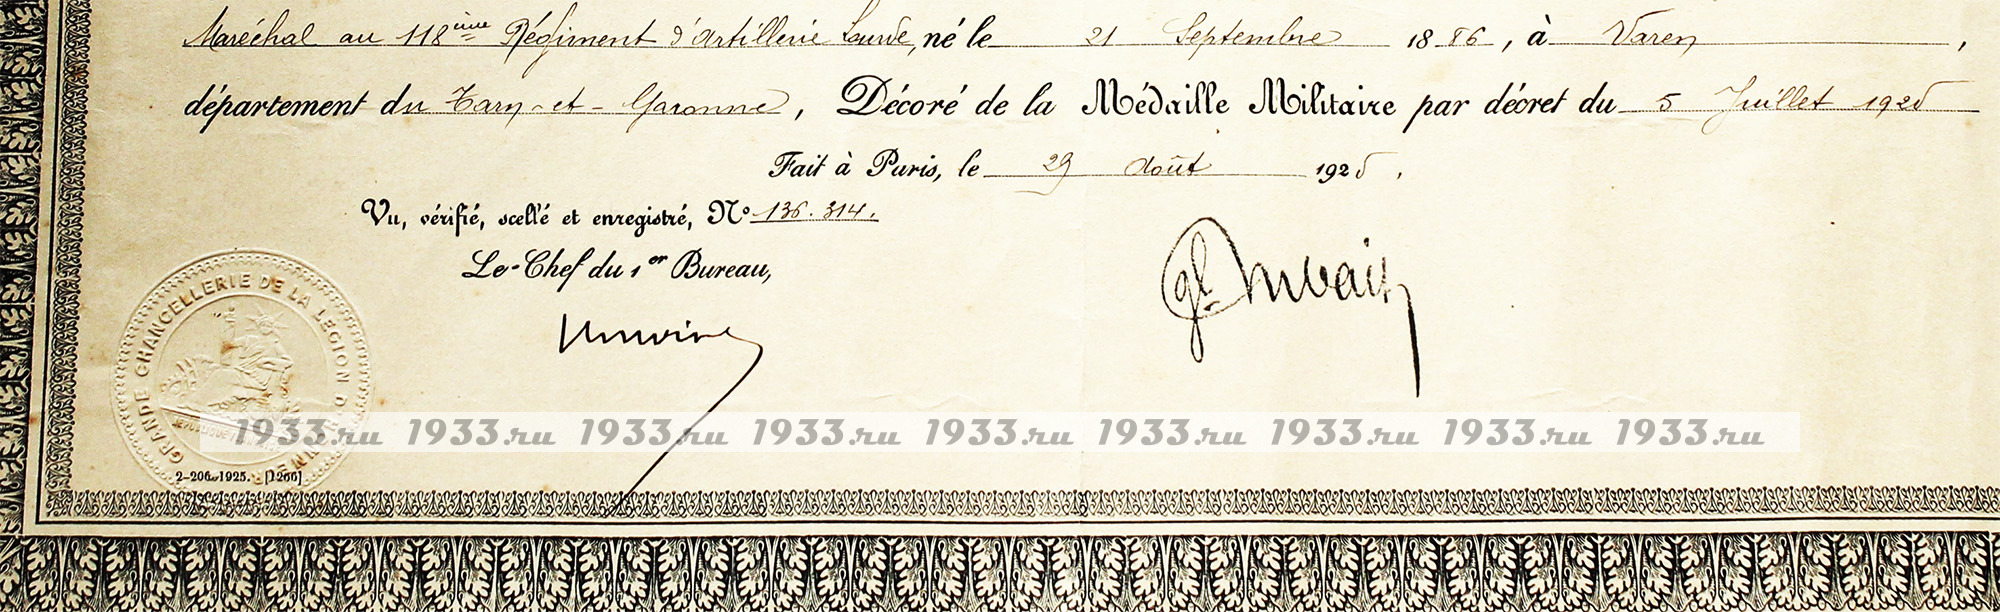 Maréchal au 118ème Régiment d'Artillerie Lourde, né le 21 Septembre 1886, à Varen,
département du Tarn-et-Garonne, Décoré de la Médaille Militaire par décret du 5 Juillet 1925
Fait à Paris, le 29 Août 1925.
Vu, vérifié, scellé et enregistré, No 136.314.
Le Chef du 1er Bureau,
gl. Dubail
GRANDE CHANCELLERIE DE LA LEGION D'HONNEUR
1933.ru 1933.ru 1933.ru 1933.ru 1933.ru 1933.ru 1933.ru 1933.ru 1933.ru
2-206-1925. [1266]